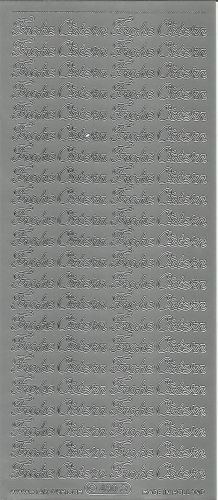 Frohe Ostern Frohe Ostern
Frohe Ostern Frohe Ostern
Frohe Ostern Frohe Ostern
Frohe Ostern Frohe Ostern
Frohe Ostern Frohe Ostern
Frohe Ostern Frohe Ostern
Frohe Ostern Frohe Ostern
Frohe Ostern Frohe Ostern
Frohe Ostern Frohe Ostern
Frohe Ostern Frohe Ostern
Frohe Ostern Frohe Ostern
Frohe Ostern Frohe Ostern
Frohe Ostern Frohe Ostern
Frohe Ostern Frohe Ostern
Frohe Ostern Frohe Ostern
Frohe Ostern Frohe Ostern
Frohe Ostern Frohe Ostern
Frohe Ostern Frohe Ostern
Frohe Ostern Frohe Ostern
Frohe Ostern Frohe Ostern
Frohe Ostern Frohe Ostern
Frohe Ostern Frohe Ostern
MADE IN HOLLAND